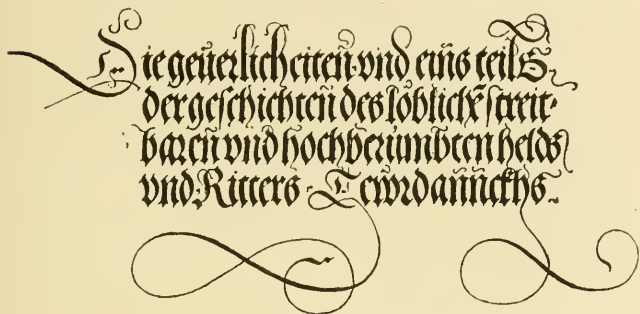 Die geüerlicheiten und eins teils
der geschichten des loblichen streit-
baren vnd hochberümbten helds
vnd Ritters Tewrdannckhs